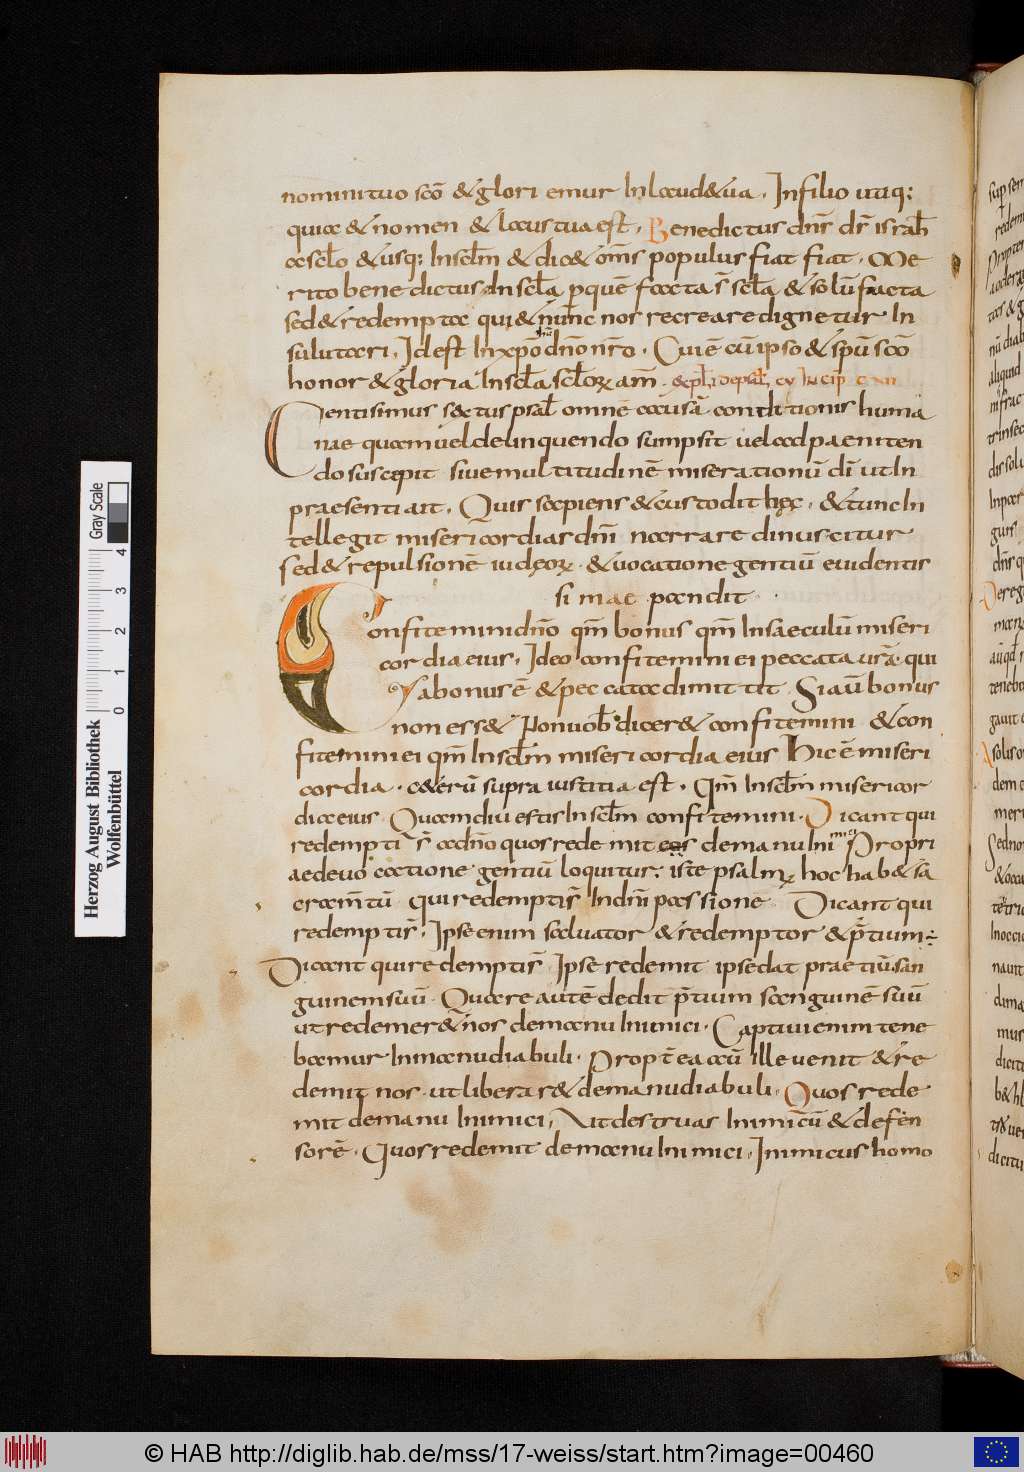 nominituo scō & glori emur Inlaud&ua. Infilio utiq:
quia & nomen & laustua est. Benedictus dnſ dſ israhł
asclo & usq: Inscłm & dic& omſ populus fiat fiat. Me
rito benedictus In scła pquē facta ſ scła & solū facta
sed & redempta qui & nunc nos recreare dignetur In
salutari. Id est Inxpō dnō nrō. Cui ē cū ipso & spū scō
honor & gloria In scła scłoꝝ am.
Centisimus sextus psał omnē causā conditionis huma
nae quam uel delinquendo sumpsit uel ad paeniten
do suscepit siue multitudinē miserationū dī ut In
praesenti ait. Quis sapiens & custodit hęc. & tunc In
tellegit misericordias dnī narrare dinuscitur
sed & repulsionē iudęoꝝ. & uocatione gentiū euidentis
simae pandit.
Confitemini dnō qm̄ bonus qm̄ Insaeculū miseri
cordia eius. Ideo confitemini ei peccata urā. qui
a bonus ē & peccata dimittit. Si aū bonus
non ess& non uob dicer& confitemini & con
fitemini ei qm̄ Inscłm misericordia eius Hic ē miseri
cordia. c&erū supra iustitia est. Qm̄ Inscłm misericor
dia eius. Quamdiu estis Inscłm confitemini. Dicant qui
redempti ſ adnō quos redemit eos demanu Inimici Propri
ae deuocatione gentiū loquitur. iste psalmꝰ hoc hab& sā
cramtū qui redempti ſ In dnī passione Dicant qui
redempti ſ. Ipse enim saluator & redemptor & p̄tium
Dicant qui redempti ſ Ipse redemit ipse dat praetiū san
guinem suū. Quare autē dedit p̄tium sanguinē suū
ut redemer& nos demanu Inimici. Captiui enim tene
bamur In manu diabuli. Propt̄ea aū ille uenit & re
demit nos. ut liberar& demanu diabuli. Quos rede
mit demanu Inimici. Ut destruas Inimicū & defen
sorē. Quos redemit demanu Inimici. Inimicus homo
Herzog August Bibliothek
Wolfenbüttel
Gray Scale
0 1 2 3 4
© HAB http://diglib.hab.de/mss/17-weiss/start.htm?image=00460